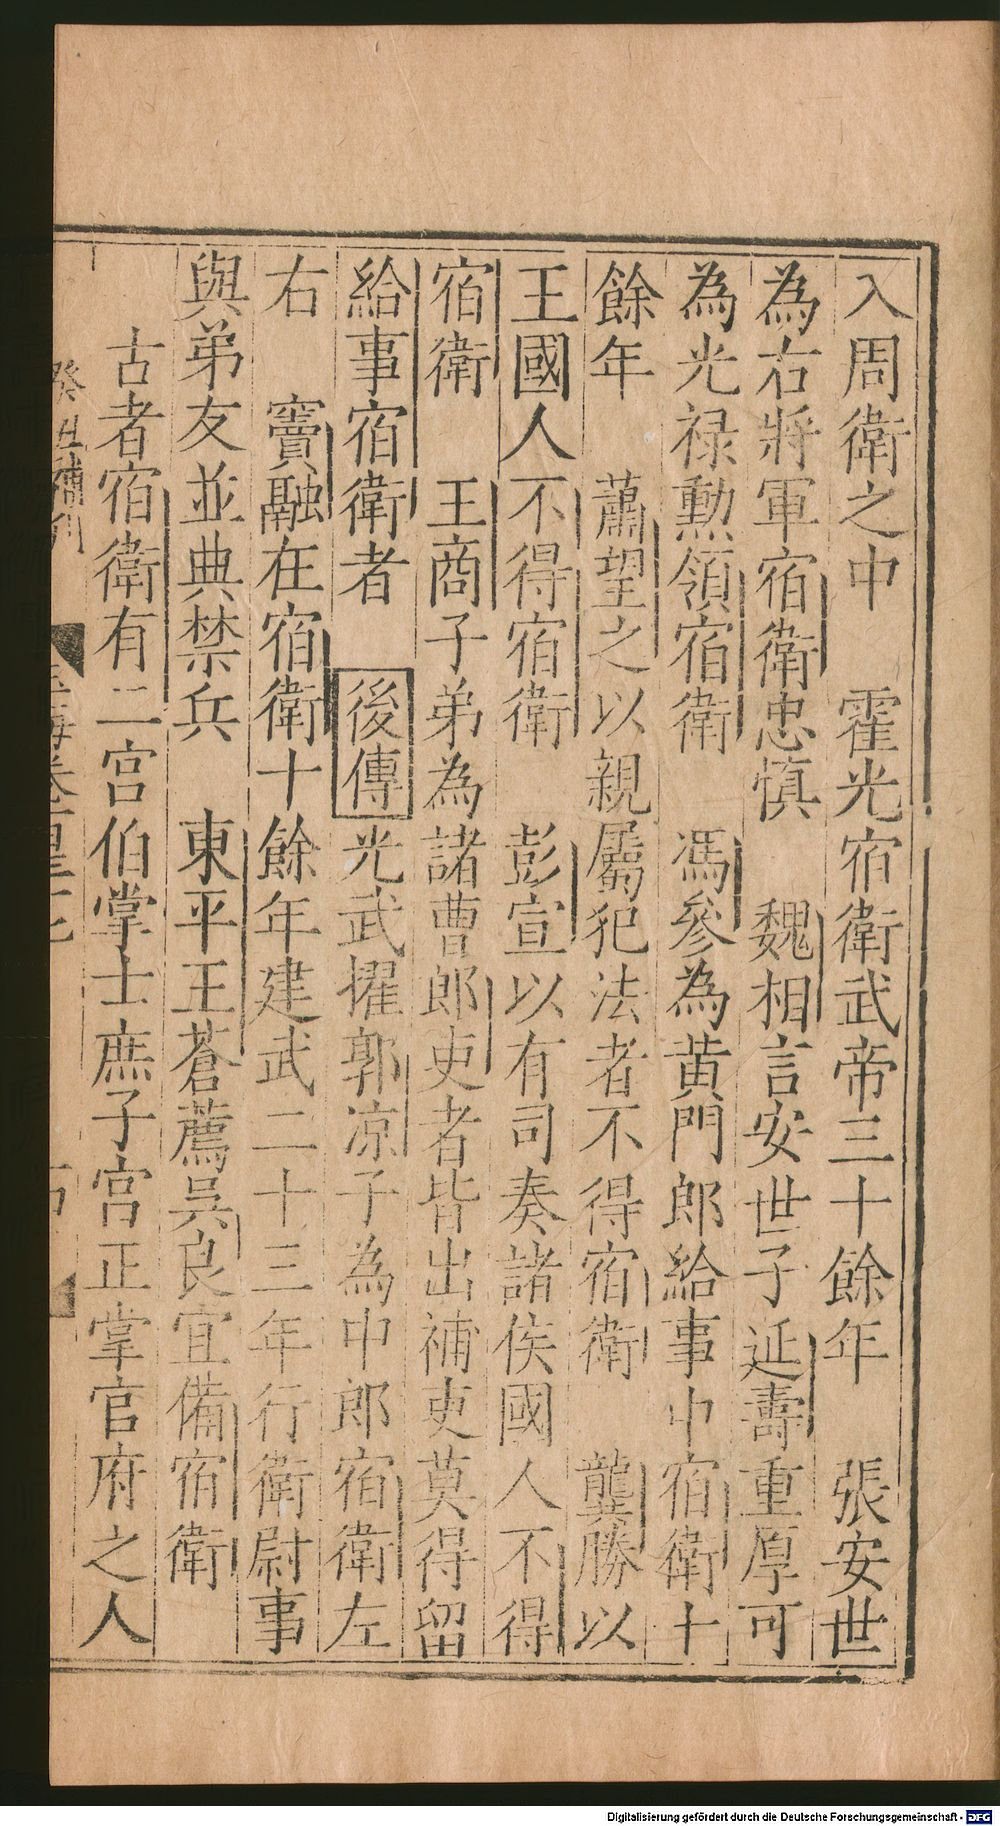 入周衛之中　霍光宿衛武帝三十餘年　張安世
為右將軍宿衛忠慎　魏相言安世子延壽重厚可
為光禄勲領宿衛　馮參為黄門郎給事中宿衛十
餘年　蕭望之以親屬犯法者不得宿衛　龔勝以
王國人不得宿衛　彭宣以有司奏諸侯國人不得
宿衛　王商子弟為諸曹郎吏者皆出補吏莫得留
給事宿衛者　後傳光武擢郭凉子為中郎宿衛左
右　竇融在宿衛十餘年建武二十三年行衛尉事
與弟友並典禁兵　東平王蒼薦吳良宜備宿衛
古者宿衛有二宫伯掌士庶子宫正掌官府之人
癸丑補刊
Digitalisierung gefördert durch die Deutsche Forschungsgemeinschaft - DFG